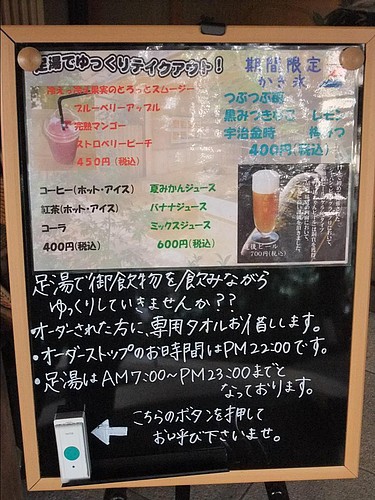 足湯でゆっくりテイクアウト！
果実のとろっとスムージー
ブルーベリーアップル
完熟マンゴー
ストロベリーピーチ
450円(税込)
期間限定
かき氷
つぶつぶ苺
黒みつきなこ レモン
宇治金時
400円(税込)
コーヒー(ホット・アイス)
紅茶(ホット・アイス)
コーラ
400円(税込)
夏みかんジュース
バナナジュース
ミックスジュース
600円(税込)
ビール
700円(税込)
足湯で御飲物を飲みながら
ゆっくりしていきませんか??
・オーダーされた方に、専用タオルお貸しします。
・オーダーストップのお時間はPM22:00です。
・足湯はAM7:00〜PM23:00までと
なっております。
こちらのボタンを押して
お呼び下さいませ。